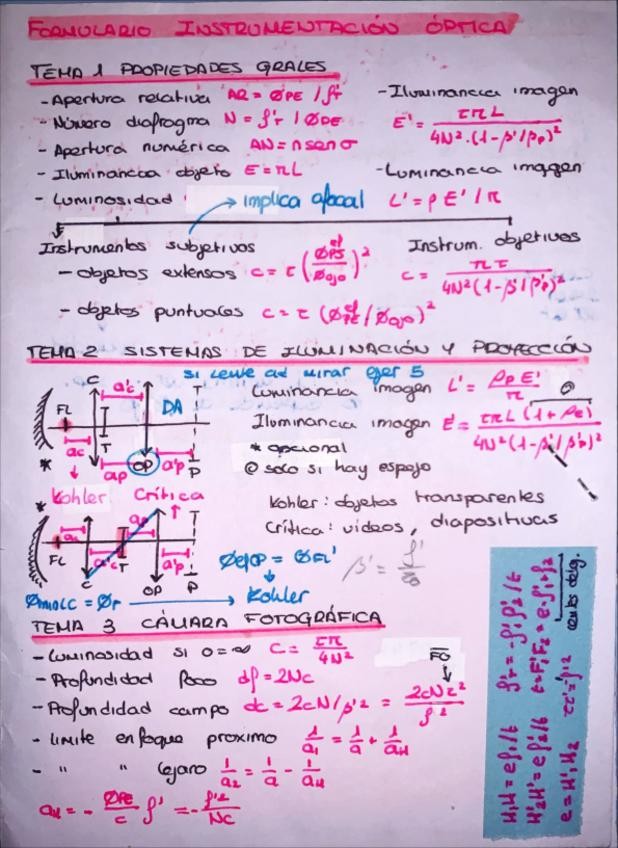 FORMULARIO INSTRUMENTACIÓN ÓPTICA
TEMA 1 PROPIEDADES GRALES
- Apertura relativa AR = ØPE / f'r
- Número diafragma N = f'r / ØPE
- Apertura numérica AN = n sen σ
- Iluminancia objeto E = πL
- Luminosidad → implica afocal
- Iluminancia imagen
E' = τπL / 4N²·(1-β'/β'p)²
- Luminancia imagen
L' = ρ E' / π
Instrumentos subjetivos
- objetos extensos C = τ (ØPS ef / Øojo)²
- objetos puntuales C = τ (ØPE ef / Øojo)²
Instrum. objetivos
C = πτ / 4N²(1-β'/β'p)²
TEMA 2 SISTEMAS DE ILUMINACIÓN Y PROYECCIÓN
si lente ad mirar ejer 5
Luminancia imagen L' = ρp E' / π
Iluminancia imagen E' = τπL (1+ρe) / 4N²(1-β'/β'p)²
* opcional
@ solo si hay espejo
C a'c DA T
FL
* ac T ap OP a'p P
Kohler Crítica
Kohler: objetos transparentes
Crítica: videos, diapositivas
* T
FL C a'c T OP a'p P
ØejOP = ØFL'
Kohler
β' = f'
ØminLC = Ør → Kohler
TEMA 3 CÁMARA FOTOGRÁFICA
- Luminosidad si o=∞ C = τπ / 4N²
- Profundidad foco df = 2Nc
- Profundidad campo dc = 2cN/β'² = 2cNz² / f'²
FO
- limite enfoque proximo 1/a1 = 1/a + 1/aH
- " " lejano 1/a2 = 1/a - 1/aH
aH = - ØPE/c f' = - f'²/Nc
H1H = e f'1/t f'r = -f'1 f'2/t
H'2H' = e f'2/t t = F'1F2 = e-f'1+f2
e = H'1H2